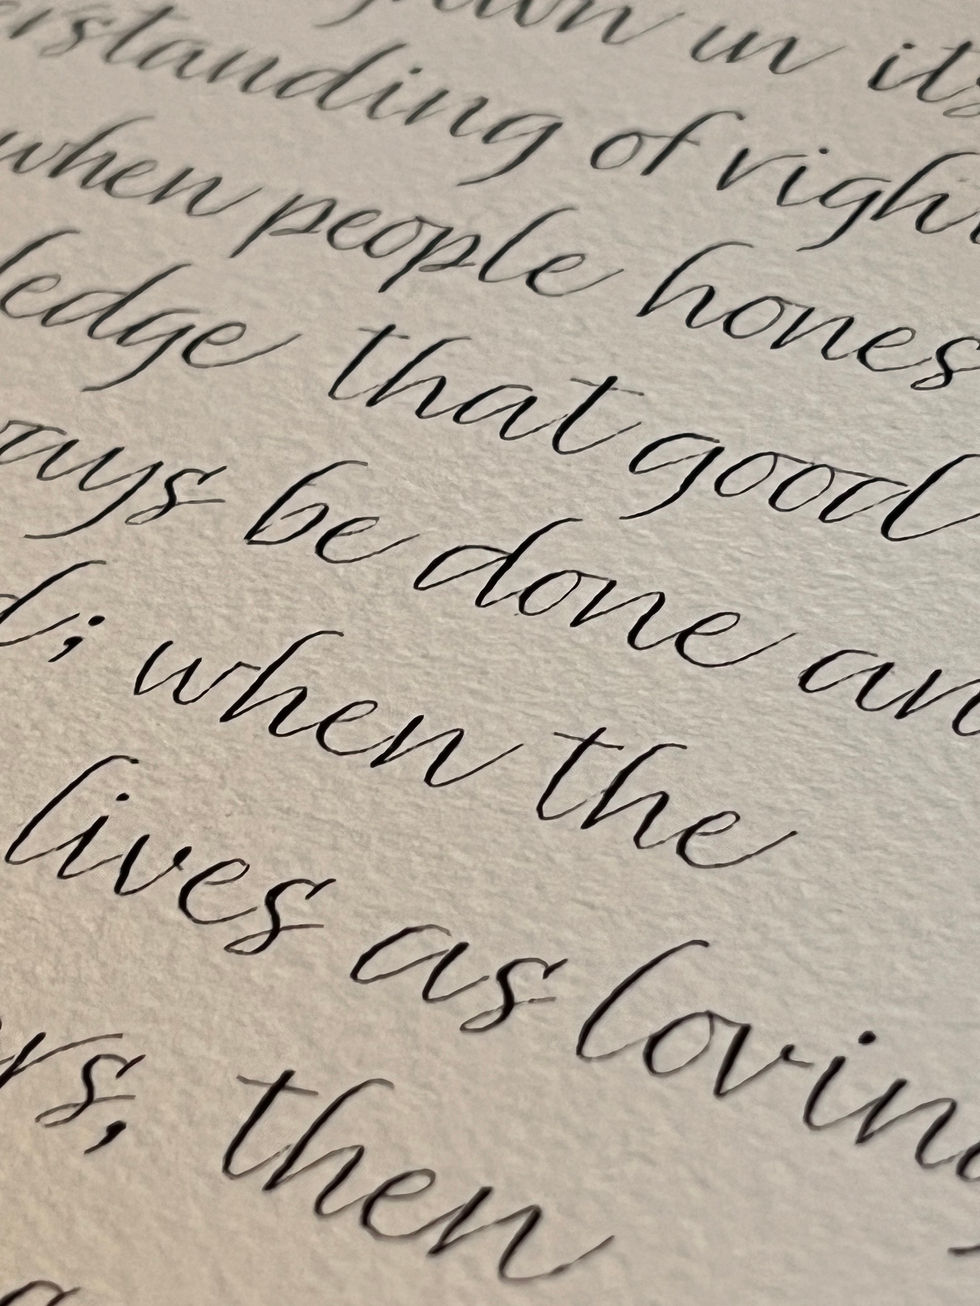 in its
standing of righ
when people hones
ledge that good
ays be done an
d; when the
lives as lovin
rs, then